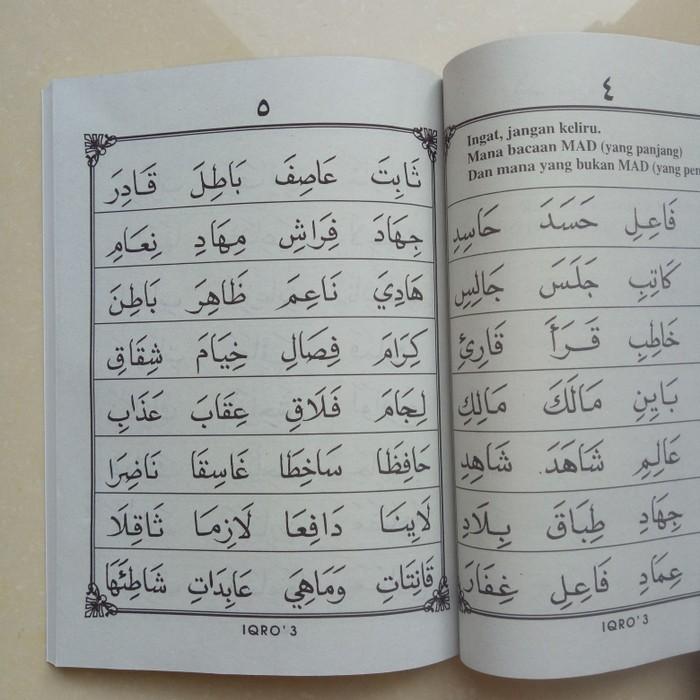 ٤
Ingat, jangan keliru.
Mana bacaan MAD (yang panjang)
Dan mana yang bukan MAD (yang pen
فَاعِلِ حَسَدَ حَاسِدِ
كَاتِبِ جَلَسَ جَالِسِ
خَاطِبِ قَرَأَ قَارِئِ
بَايِنِ مَالَكَ مَالِكِ
عَالِمِ شَاهَدَ شَاهِدِ
جِهَادِ طِبَاقَ بِلَادِ
عِمَادِ فَاعِلِ غِفَارَ
IQRO'3
٥
ثَابِتَ عَاصِفَ بَاطِلَ قَادِرَ
جِهَادَ فِرَاشِ مِهَادِ نِعَامِ
هَادِيَ نَاعِمَ ظَاهِرَ بَاطِنَ
كِرَامَ فِصَالِ خِيَامَ شِقَاقِ
لِجَامَ فَلَاقِ عِقَابَ عَذَابِ
حَافِظَا سَاخِطَا غَاسِقَا نَاضِرَا
لَايِنَا دَافِعَا لَازِمَا ثَاقِلَا
قَانِتَاتِ وَمَاهِيَ عَابِدَاتِ شَاطِئَهَا
IQRO'3